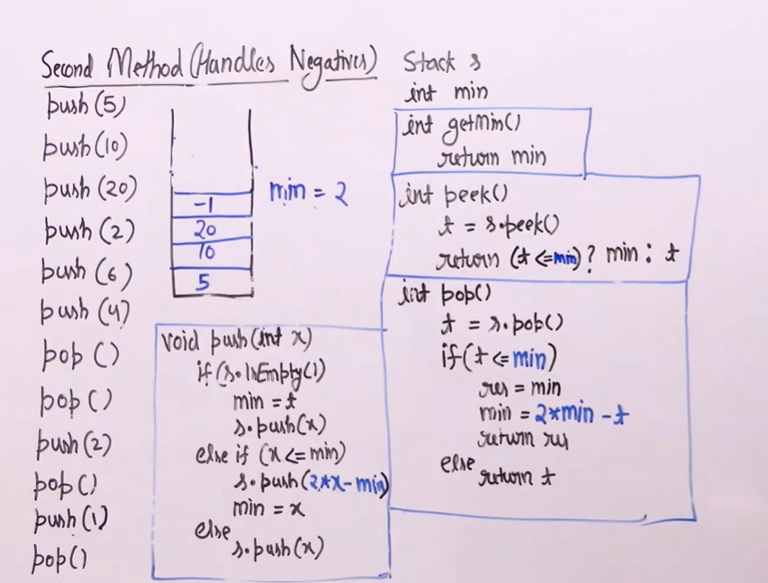 Second Method (Handles Negatives)
push(5)
push(10)
push(20)
push(2)
push(6)
push(4)
pop()
pop()
push(2)
pop()
push(1)
pop()
-1
20
10
5
min = 2
void push(int x)
if(s.isEmpty())
min = t
s.push(x)
else if (x <= min)
s.push(2*x-min)
min = x
else
s.push(x)
Stack s
int min
int getMin()
return min
int peek()
t = s.peek()
return (t <= min)? min : t
int pop()
t = s.pop()
if(t <= min)
res = min
min = 2*min - t
return res
else
return t